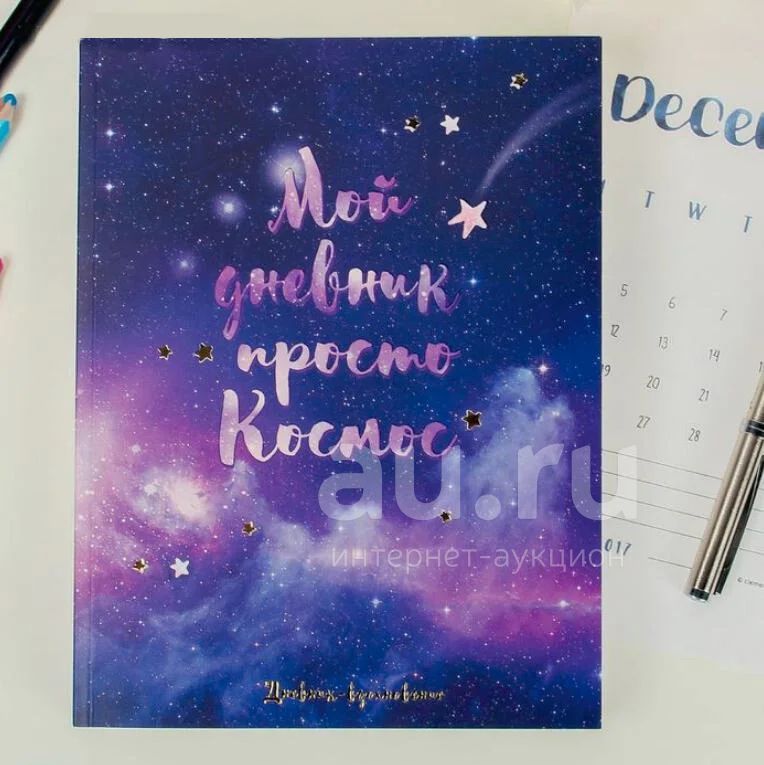 Мой
дневник
просто
Космос
Дневник-вдохновение
au.ru
интернет-аукцион
T W T
5 6 7
12 13 14
19 20 21
27 28
017